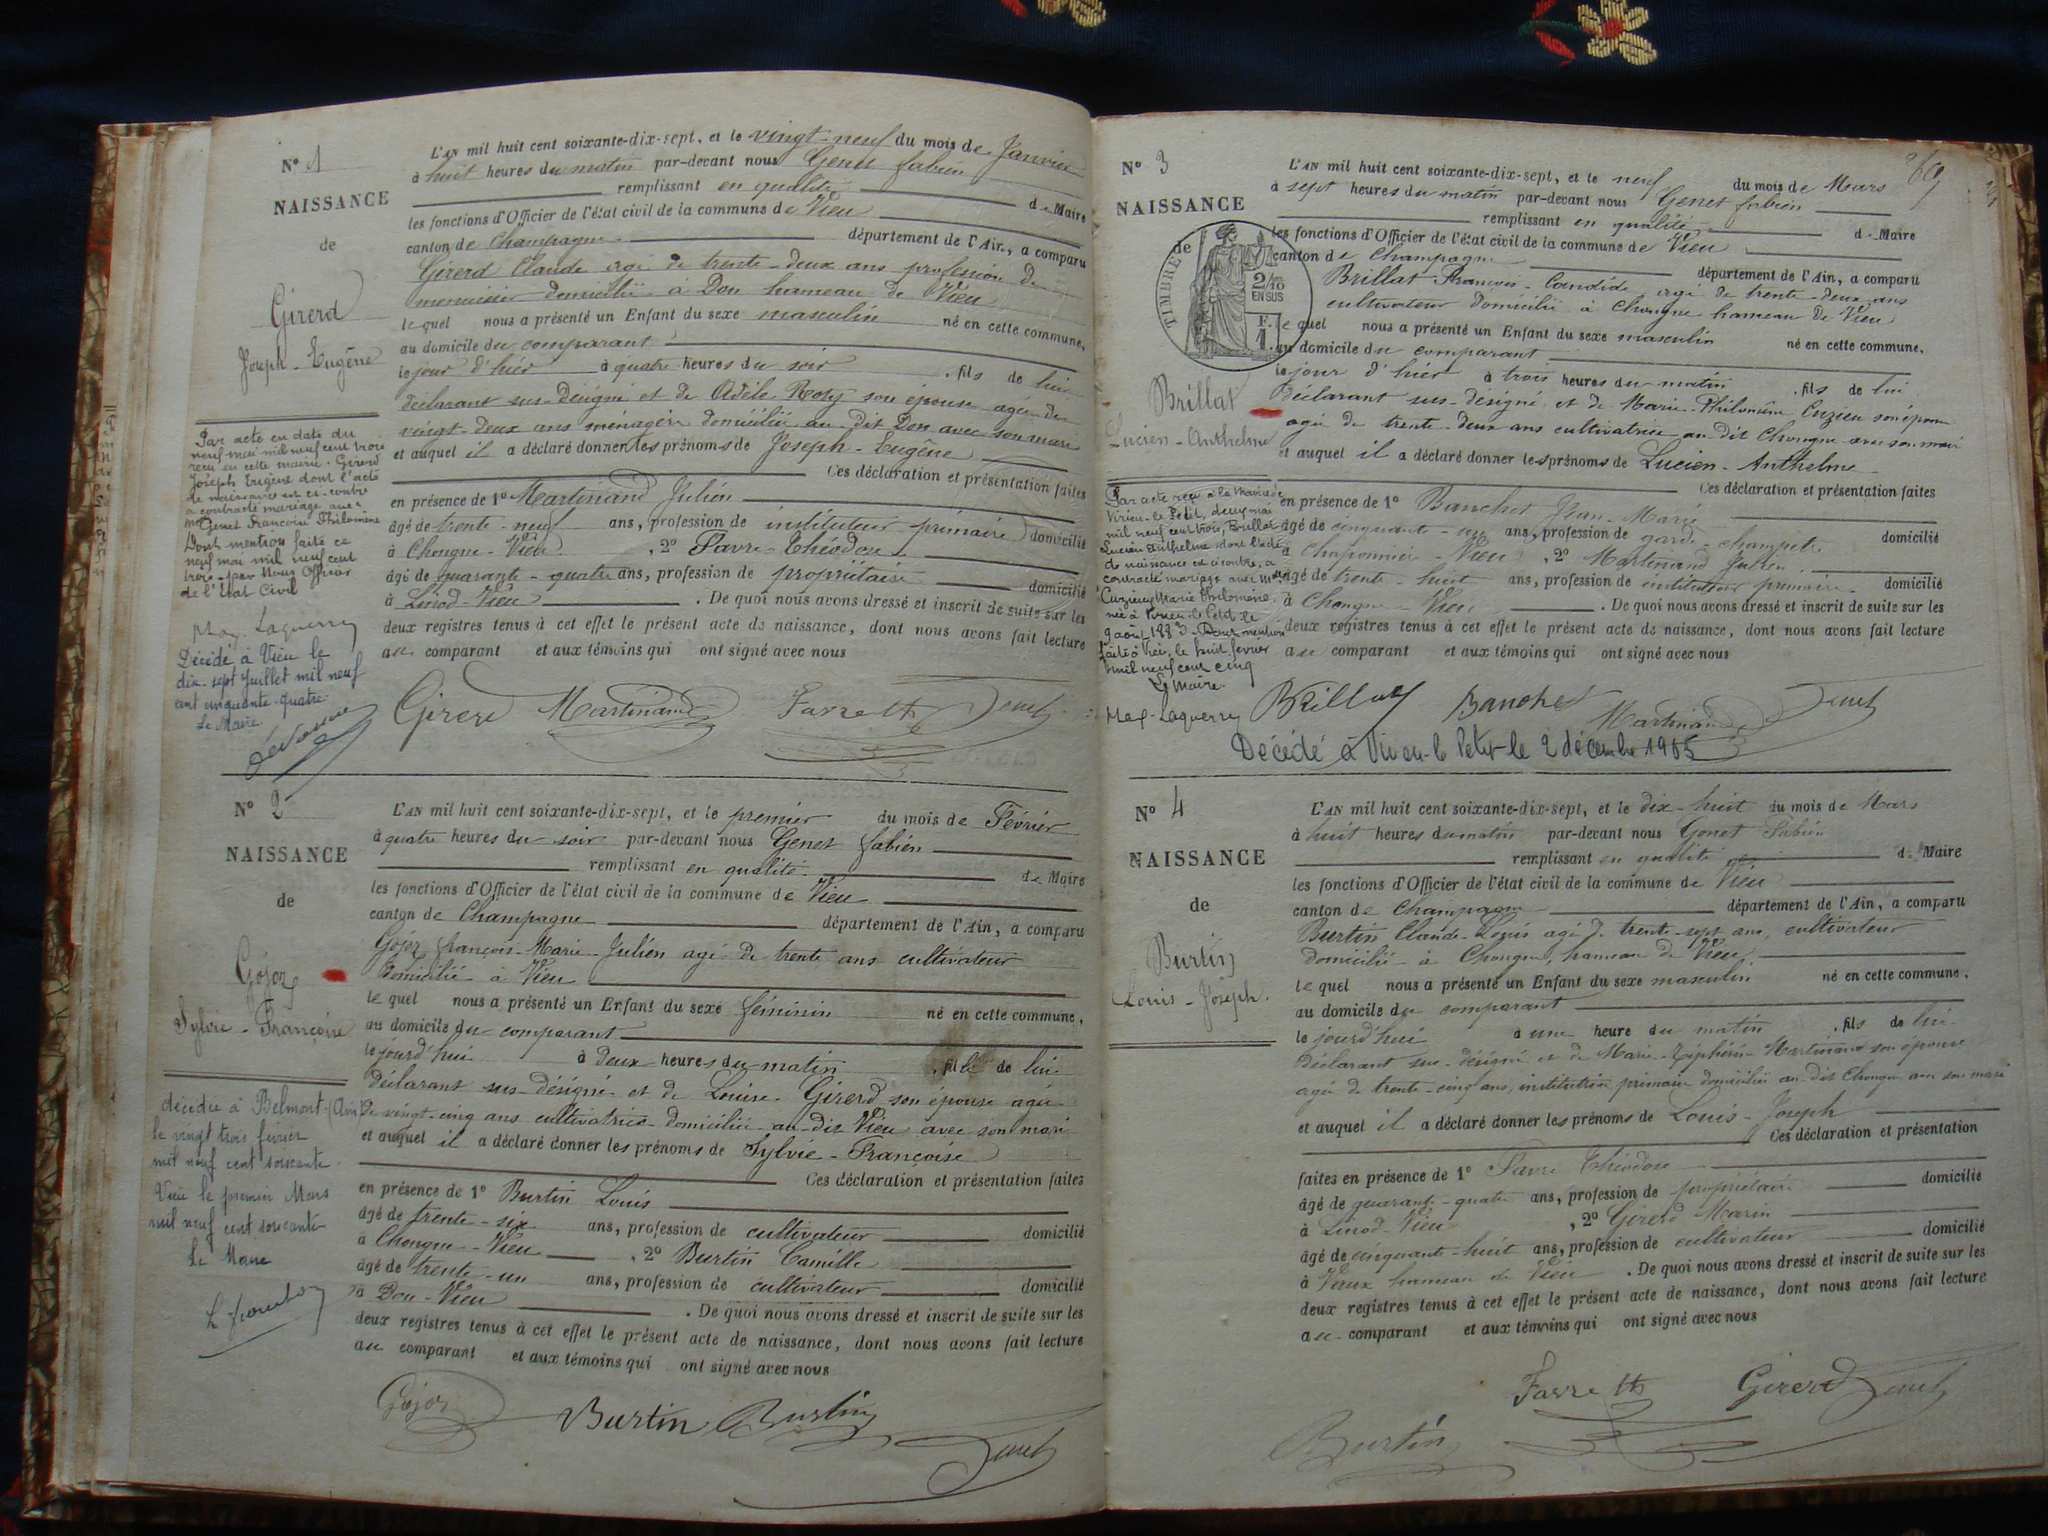 N° 1
NAISSANCE
de
Girerd
Joseph-Eugène
Par acte en date du
neuf mai mil neuf cent trois
reçu en cette mairie, Girerd
Joseph Eugène dont l'acte
de naissance est ci-contre
a contracté mariage avec
Genet Françoise Philomène
Dont mention faite ce
neuf mai mil neuf cent
trois par Nous Officier
de l'Etat Civil
Laguerre
Décédé à Vieu le
dix-sept Juillet mil neuf
cent cinquante-quatre
Le Maire
L'AN mil huit cent soixante-dix-sept, et le vingt-neuf du mois de Janvier
à huit heures du matin par-devant nous Genet fabien
remplissant en qualité de Maire
les fonctions d'Officier de l'état civil de la commune de Vieu
canton de Champagne département de l'Ain, a comparu
Girerd Claude agé de trente-deux ans profession de
menuisier domicilié à Don hameau de Vieu
le quel nous a présenté un Enfant du sexe masculin né en cette commune,
au domicile du comparant
le jour d'hier à quatre heures du soir, fils de lui
déclarant sus-désigné et de Adèle son épouse agée de
vingt-deux ans ménagère domiciliée au dit Don avec son mari
et auquel il a déclaré donner les prénoms de Joseph-Eugène
Ces déclaration et présentation faites
en présence de 1° Martinand Julien
âgé de trente-neuf ans, profession de instituteur primaire domicilié
à Chongne-Vieu, 2° Favre-Théodore
âgé de quarante-quatre ans, profession de propriétaire domicilié
à Linod-Vieu. De quoi nous avons dressé et inscrit de suite sur les
deux registres tenus à cet effet le présent acte de naissance, dont nous avons fait lecture
au comparant et aux témoins qui ont signé avec nous
Girerd Martinand Favre Th Genet
N° 2
NAISSANCE
de
Gojoz
Sylvie-Françoise
décédée à Belmont (Ain)
le vingt trois février
mil neuf cent soixante.
Vieu le premier Mars
mil neuf cent soixante
Le Maire
L'AN mil huit cent soixante-dix-sept, et le premier du mois de Février
à quatre heures du soir par-devant nous Genet fabien
remplissant en qualité de Maire
les fonctions d'Officier de l'état civil de la commune de Vieu
canton de Champagne département de l'Ain, a comparu
Gojoz françois-Marie-Julien agé de trente ans cultivateur
domicilié à Vieu
le quel nous a présenté un Enfant du sexe féminin né en cette commune,
au domicile du comparant
le jourd'hui à deux heures du matin, fille de lui
déclarant sus-désigné et de Louise Girerd son épouse agée
de vingt-cinq ans cultivatrice domiciliée au-dit Vieu avec son mari
et auquel il a déclaré donner les prénoms de Sylvie-Françoise
Ces déclaration et présentation faites
en présence de 1° Burtin Louis
âgé de trente-six ans, profession de cultivateur domicilié
à Chongne-Vieu, 2° Burtin Camille
âgé de trente-un ans, profession de cultivateur domicilié
à Don-Vieu. De quoi nous avons dressé et inscrit de suite sur les
deux registres tenus à cet effet le présent acte de naissance, dont nous avons fait lecture
au comparant et aux témoins qui ont signé avec nous
Gojoz Burtin Burtin Genet
N° 3
NAISSANCE
de
TIMBRE
2/10
EN SUS
F.
1.
Brillat
Lucien-Anthelme
Par acte reçu à la Mairie de
Virieu-le-Petit, deux mai
mil neuf cent trois, Brillat
Lucien Anthelme dont l'acte
de naissance est ci-contre, a
contracté mariage avec
Cuzieu Marie Philomène
née à Virieu-le-Petit le
9 août 1883. Dont mention
faite à Vieu, le huit février
mil neuf cent cinq
Le Maire.
Laguerre
L'AN mil huit cent soixante-dix-sept, et le neuf du mois de Mars
à sept heures du matin par-devant nous Genet fabien
remplissant en qualité de Maire
les fonctions d'Officier de l'état civil de la commune de Vieu
canton de Champagne département de l'Ain, a comparu
Brillat François-Candide agé de trente-deux ans
cultivateur domicilié à Chongne hameau de Vieu
le quel nous a présenté un Enfant du sexe masculin né en cette commune,
au domicile du comparant
le jour d'hier à trois heures du matin, fils de lui
déclarant sus-désigné et de Marie-Philomène Cuzieu son épouse
agée de trente-deux ans cultivatrice au dit Chongne avec son mari
et auquel il a déclaré donner les prénoms de Lucien-Anthelme
Ces déclaration et présentation faites
en présence de 1° Banchet Jean-Marie
âgé de cinquante-un ans, profession de garde-champêtre domicilié
à Chaponnier-Vieu, 2° Martinand Julien
âgé de trente-huit ans, profession de instituteur primaire domicilié
à Chongne-Vieu. De quoi nous avons dressé et inscrit de suite sur les
deux registres tenus à cet effet le présent acte de naissance, dont nous avons fait lecture
au comparant et aux témoins qui ont signé avec nous
Brillat Banchet Martinand Genet
Décédé à Virieu-le-Petit le 2 décembre 1965
N° 4
NAISSANCE
de
Burtin
Louis-Joseph.
L'AN mil huit cent soixante-dix-sept, et le dix-huit du mois de Mars
à huit heures du matin par-devant nous Genet Fabien
remplissant en qualité de Maire
les fonctions d'Officier de l'état civil de la commune de Vieu
canton de Champagne département de l'Ain, a comparu
Burtin Claude-Louis agé de trente-sept ans, cultivateur
domicilié à Chongne, hameau de Vieu.
le quel nous a présenté un Enfant du sexe masculin né en cette commune,
au domicile du comparant
le jourd'hui à une heure du matin, fils de lui
déclarant sus-désigné et de Marie-Zéphérine Martinand son épouse
agée de trente-cinq ans, institutrice primaire domiciliée au dit Chongne avec son mari
et auquel il a déclaré donner les prénoms de Louis-Joseph
Ces déclaration et présentation
faites en présence de 1° Favre Théodore
âgé de quarante-quatre ans, profession de propriétaire domicilié
à Linod-Vieu, 2° Girerd Marin
âgé de cinquante-huit ans, profession de cultivateur domicilié
à Vaux hameau de Vieu. De quoi nous avons dressé et inscrit de suite sur les
deux registres tenus à cet effet le présent acte de naissance, dont nous avons fait lecture
au comparant et aux témoins qui ont signé avec nous
Favre Th Girerd Genet
Burtin